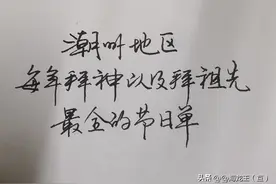 潮州地区
每年拜神以及拜祖先
最全的节日单
头条 @潮龙王（宣）